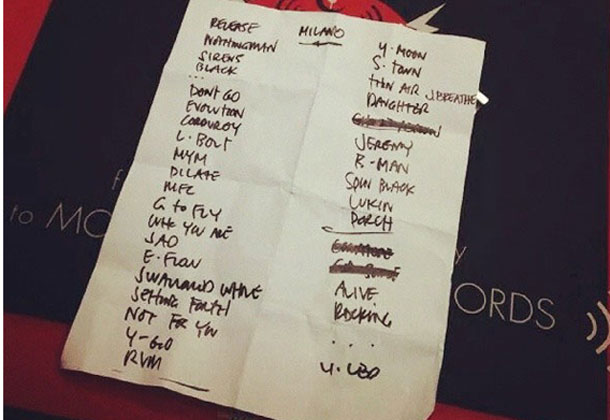 MILANO
RELEASE
NOTHINGMAN
SIRENS
BLACK
...
DONT GO
EVOLUTION
CORDUROY
L. BOLT
MYM
DILATE
MFC
G to FLY
WHO YOU ARE
SAD
E. FLOW
SWALLOWED WHOLE
SETTING FORTH
NOT FOR YOU
Y-GO
RVM
Y. MOON
S. TOWN
THIN AIR ↓BREATHE
DAUGHTER
JEREMY
B-MAN
SPIN BLACK
LUKIN
PORCH
ALIVE
ROCKING
...
Y. LED
to MO
ORDS